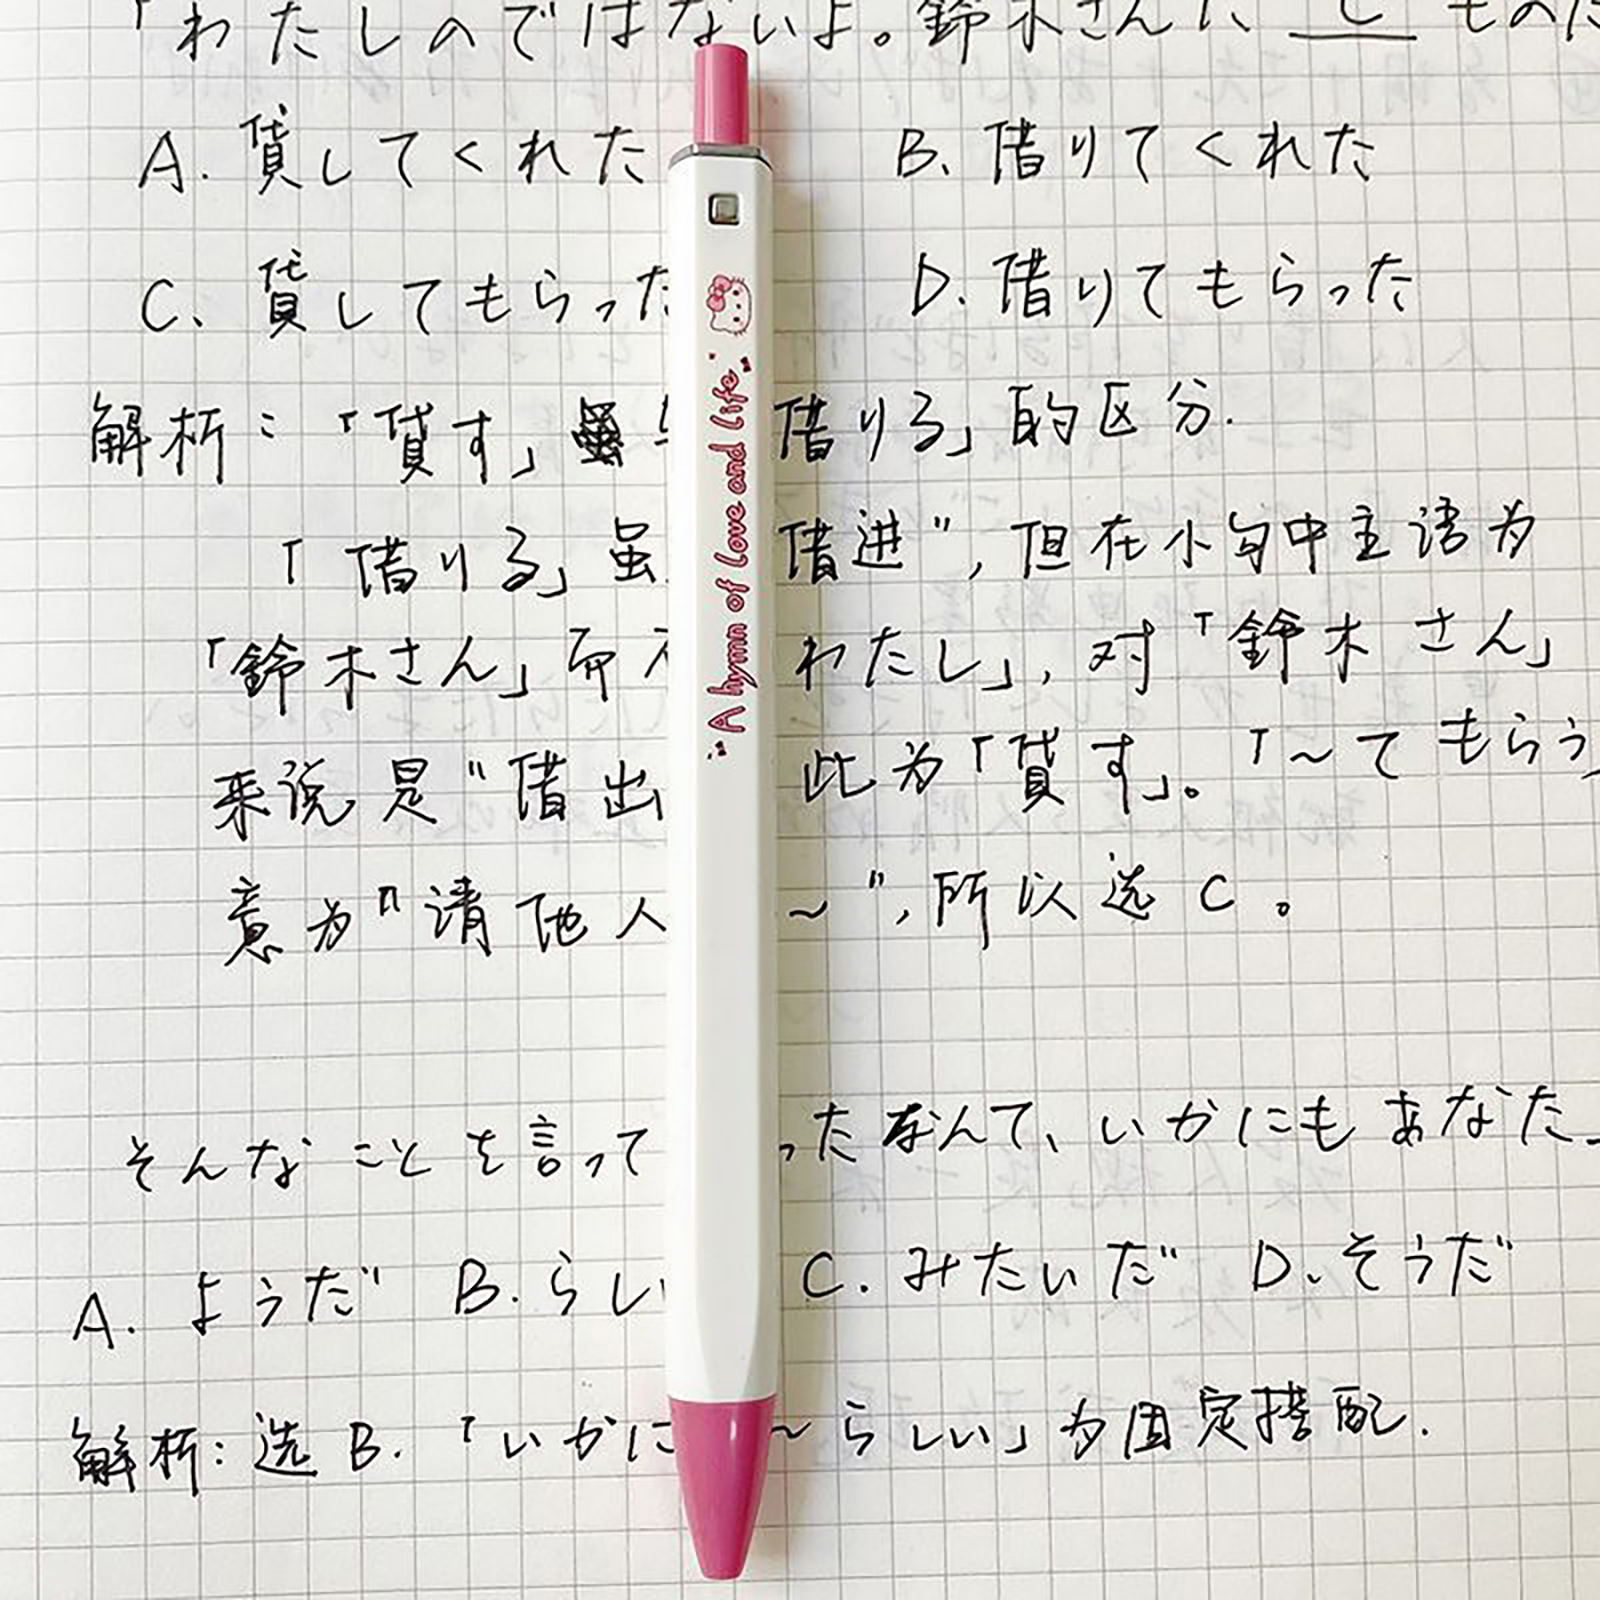 「わたしのではないよ。鈴木さんに C もの
A. 貸してくれた B. 借りてくれた
C. 貸してもらった D. 借りてもらった
解析：「貸す」 借りる」的区分.
「借りる」虽 借进”，但在小句中主语为
「鈴木さん」而 わたし」，对「鈴木さん」
来说是“借出 此为「貸す」。「～てもらう
意为“请他人 ～”，所以选 C。
そんなことを言って ったなんて、いかにもあなた_
A. ようだ B. らし C. みたいだ D. そうだ
解析：选 B. 「いかに ～らしい」为固定搭配.
A hymn of love and life